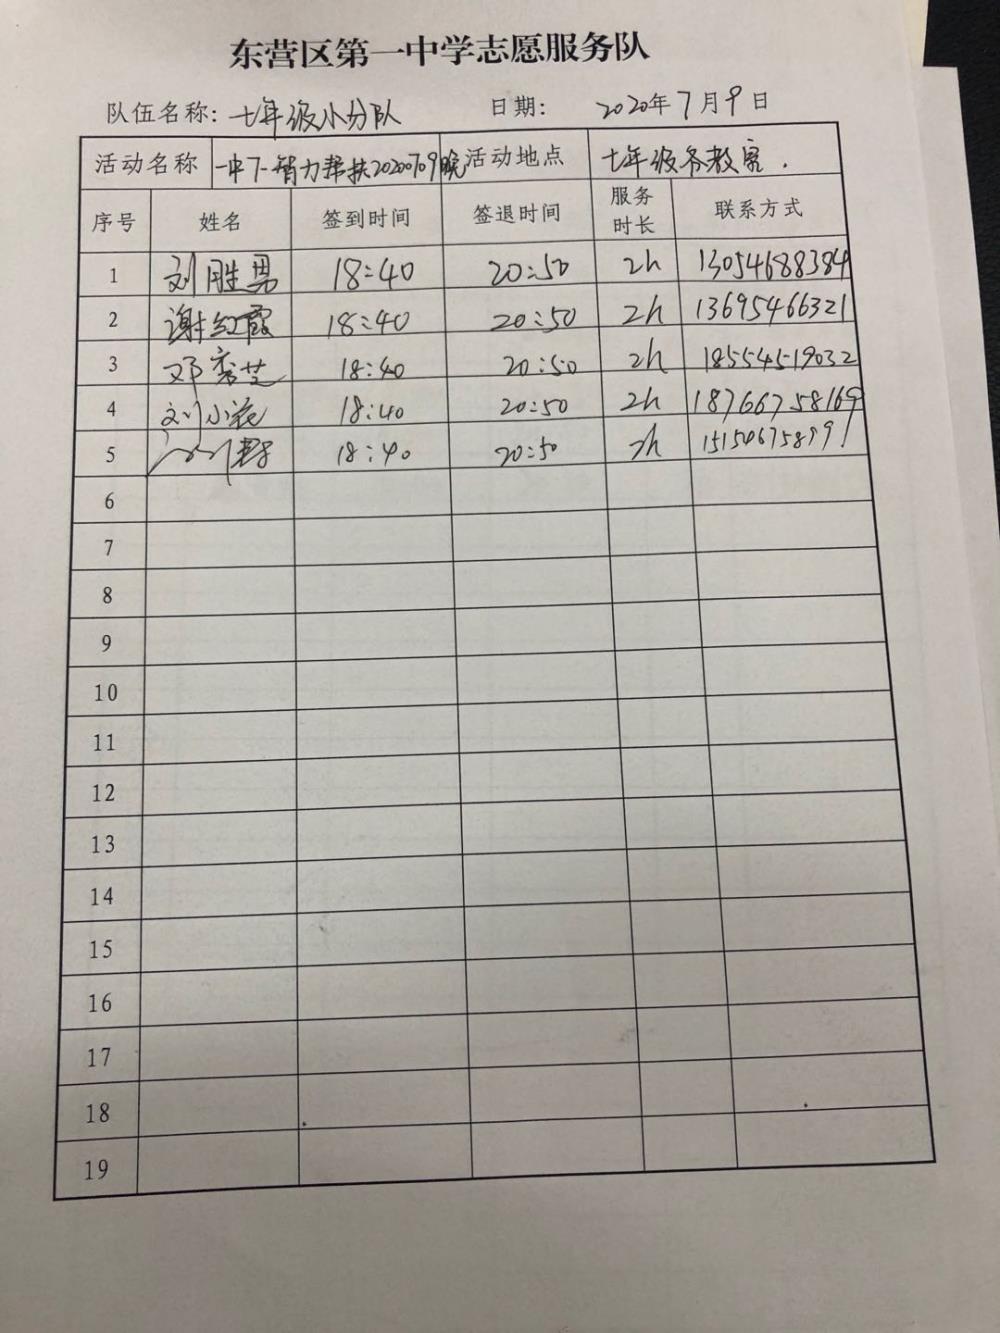 东营区第一中学志愿服务队
队伍名称: 七年级小分队 日期: 2020年7月9日
活动名称 一中7-智力帮扶20200709晚 活动地点 七年级各教室.
序号 姓名 签到时间 签退时间 服务时长 联系方式
1 刘胜男 18:40 20:50 2h 13054688384
2 谢红霞 18:40 20:50 2h 13695466321
3 邓秀芝 18:40 20:50 2h 18554519032
4 刘小花 18:40 20:50 2h 18766758169
5 18:40 20:50 2h
6
7
8
9
10
11
12
13
14
15
16
17
18
19